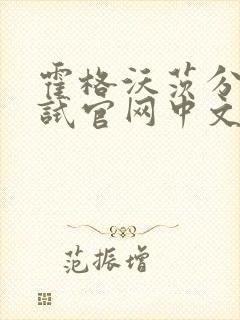 霍格沃茨分
试官网中文
范振增